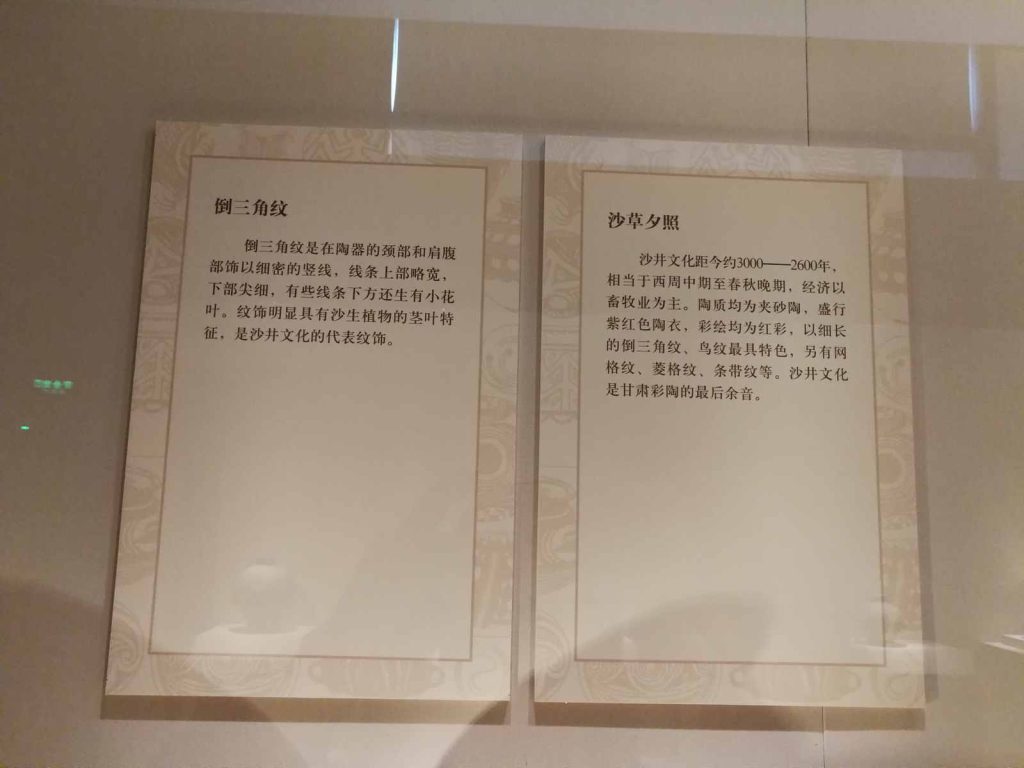 倒三角纹
倒三角纹是在陶器的颈部和肩腹
部饰以细密的竖线，线条上部略宽，
下部尖细，有些线条下方还生有小花
叶。纹饰明显具有沙生植物的茎叶特
征，是沙井文化的代表纹饰。
沙草夕照
沙井文化距今约3000——2600年，
相当于西周中期至春秋晚期，经济以
畜牧业为主。陶质均为夹砂陶，盛行
紫红色陶衣，彩绘均为红彩，以细长
的倒三角纹、鸟纹最具特色，另有网
格纹、菱格纹、条带纹等。沙井文化
是甘肃彩陶的最后余音。